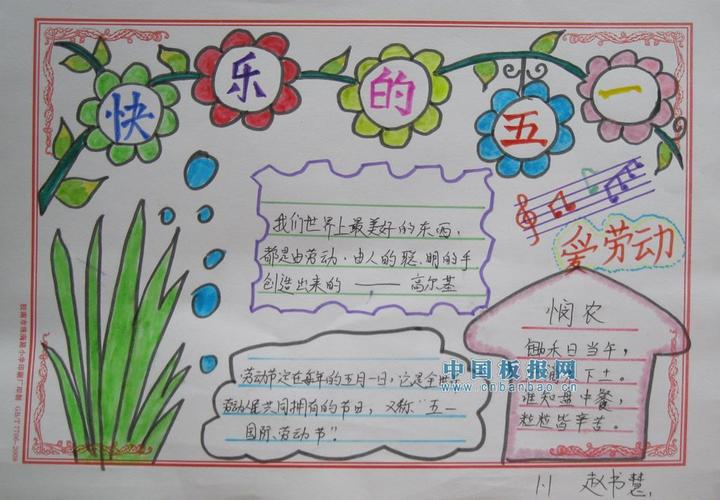 快乐的五一
爱劳动
我们世界上最美好的东西,
都是由劳动、由人的聪明的手
创造出来的 —— 高尔基
悯农
锄禾日当午,
下土。
谁知盘中餐,
粒粒皆辛苦。
劳动节定在每年的五月一日,它是全世
劳动人民共同拥有的节日,又称"五一
国际劳动节"?
中国板报网
www.cnbanbao.cn
1.1 赵书慧